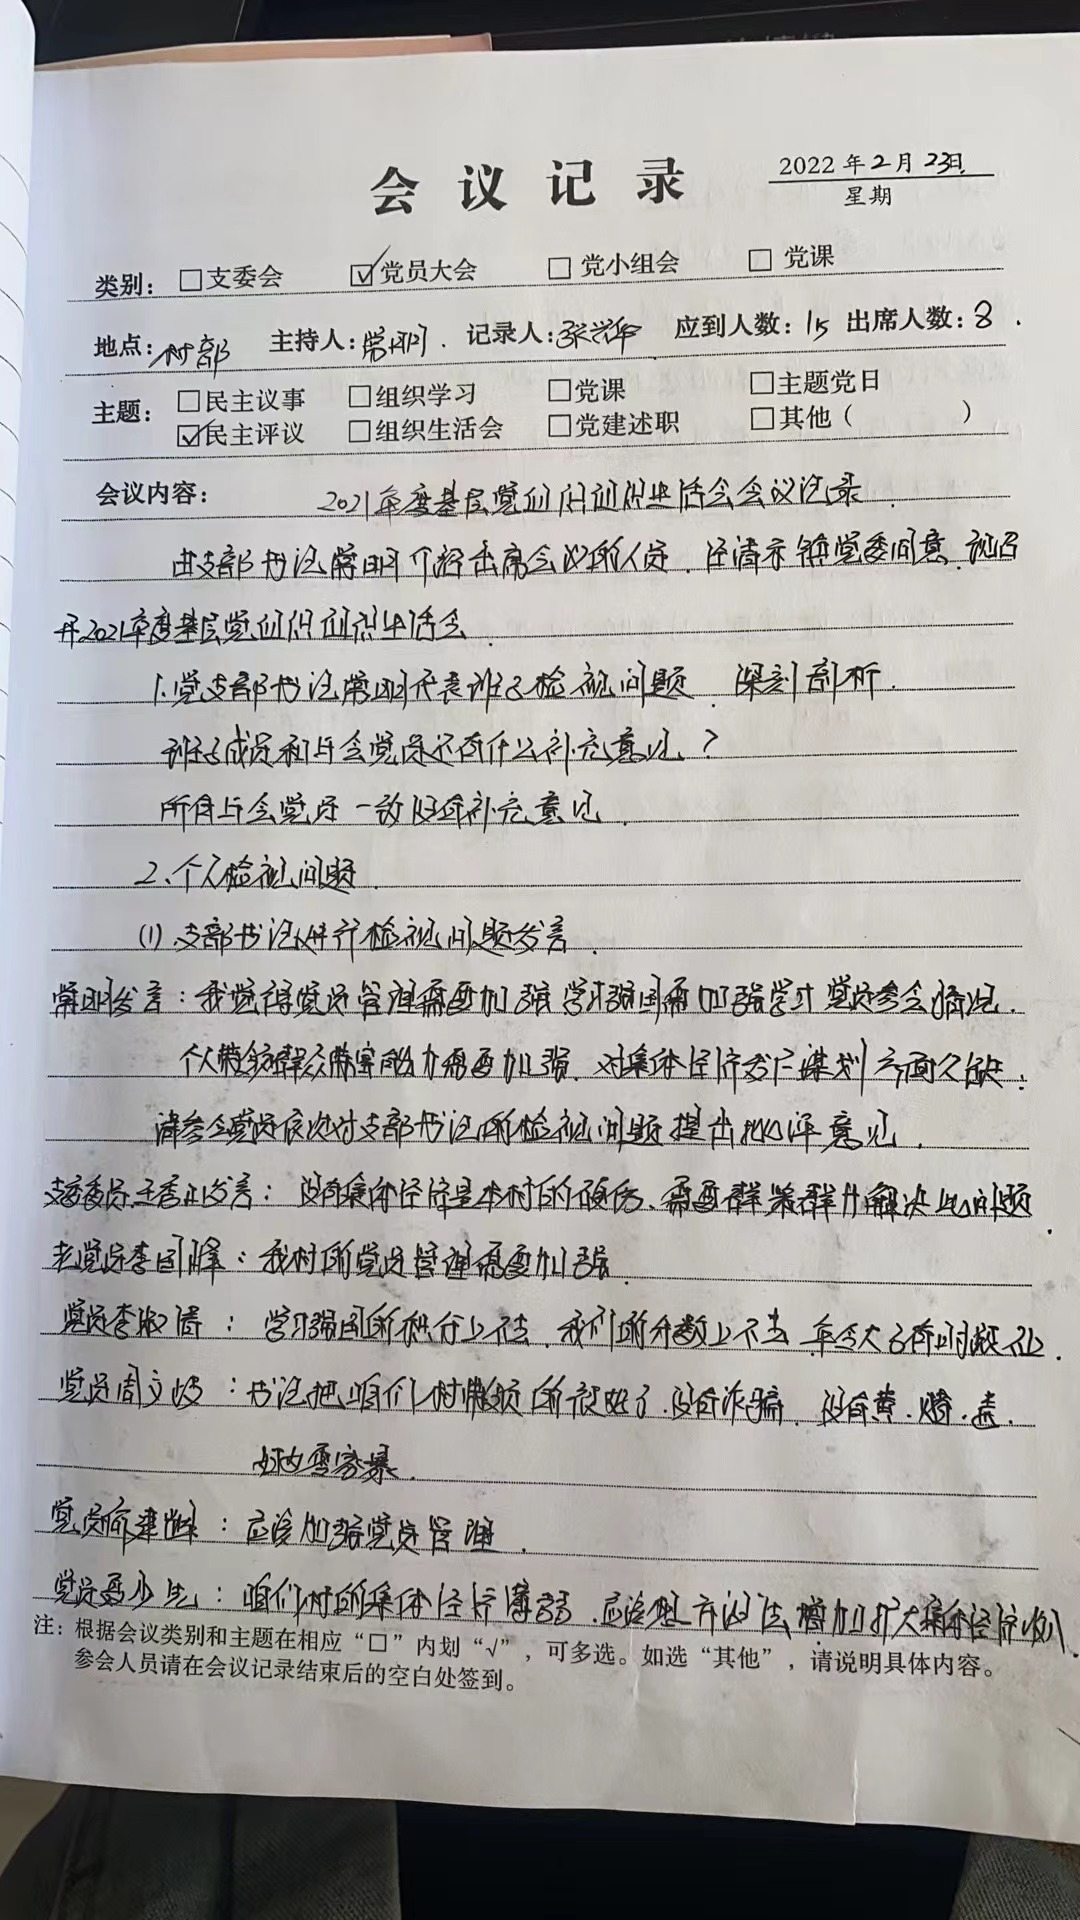 会议记录
2022年2月23日
星期
类别：□支委会 ☑党员大会 □党小组会 □党课
地点：村部 主持人：常明 记录人：张 应到人数：15 出席人数：8.
主题：□民主议事 □组织学习 □党课 □主题党日
☑民主评议 □组织生活会 □党建述职 □其他（ ）
会议内容：2021年度基层党组织组织生活会会议记录.
由支部书记常明介绍出席会议的人员.经请示镇党委同意.现召
开2021年度基层党组织组织生活会.
1.党支部书记常明代表班子检视问题 深刻剖析.
班子成员和与会党员还有什么补充意见？
所有与会党员一致没有补充意见.
2、个人检视问题.
(1)、支部书记进行检视问题发言.
常明发言：我觉得党员管理需要加强 学习强国需加强学习 党员参会情况.
个人带领群众致富能力需要加强.对集体经济发广谋划方面欠缺.
请参会党员依次对支部书记所检视问题提出批评意见.
支部委员王 发言：没有集体经济是本村的硬伤、需要群策群力解决此问题.
老党员李国峰：我村的党员管理需要加强.
党员李淑清：学习强国的积分上不去.我们的分数上不去 年令大了有时凝不上.
党员周文 ：书记把咱们村带领的很好了.没有诈骗.没有黄.赌.毒.
党员 建 ：应该加强党员管理.
党员 少先：咱们村的集体经济薄弱.应该想方设法增加扩大集体经济收入.
注：根据会议类别和主题在相应“□”内划“√”，可多选。如选“其他”，请说明具体内容。
参会人员请在会议记录结束后的空白处签到。